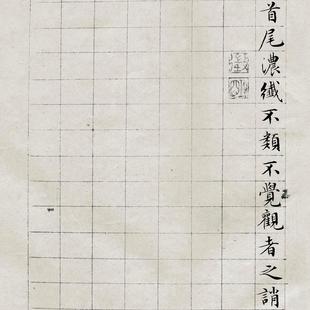 首尾濃纖不類不覺觀者之誚